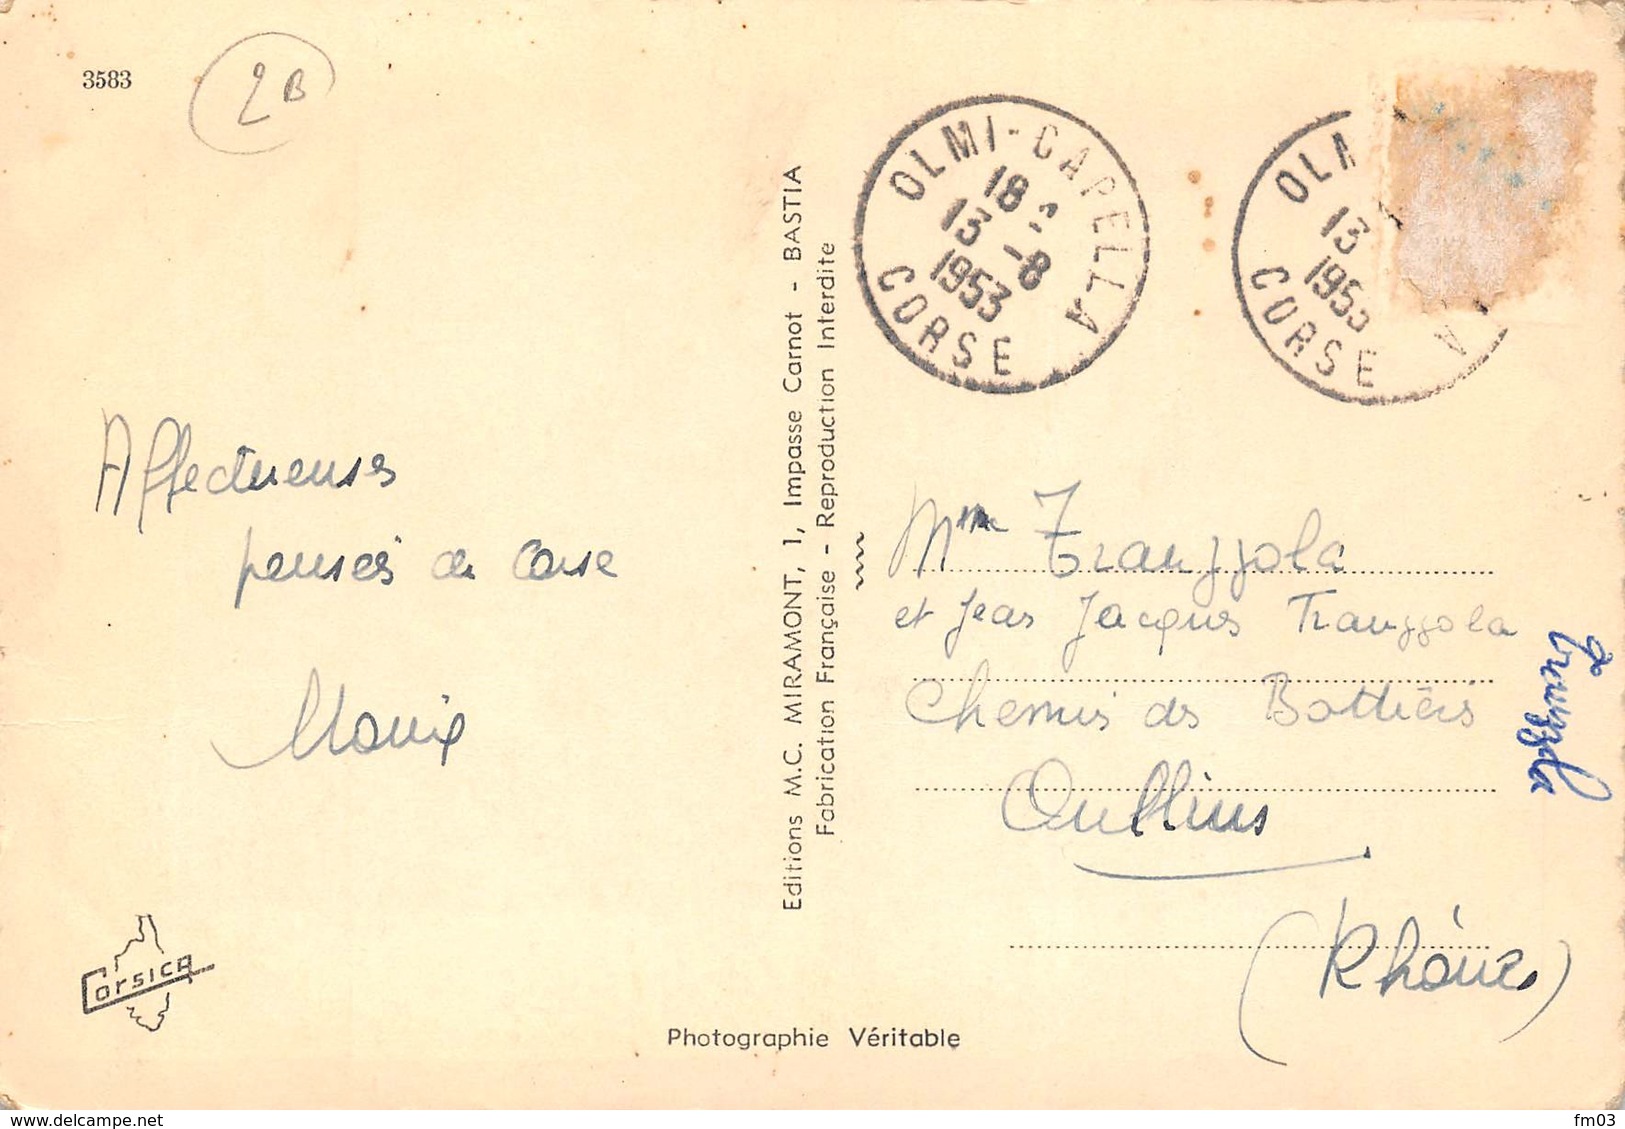 3583
2B
OLMI-CAPELLA
18
13 -8
1953
CORSE
OLM A
13
1953
CORSE
Affectueuses
pensées de Corse
Editions M.C. MIRAMONT, 1, Impasse Carnot - BASTIA
Fabrication Française - Reproduction Interdite
Mme Tranzzola
et Jean Jacques Tranzzola
Chemin des Bottières
Oullins
(Rhône)
Corsica
Photographie Véritable
www.delcampe.net
fm03